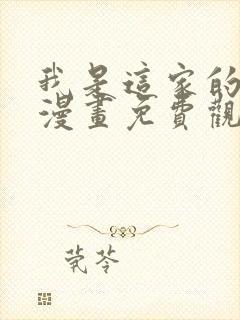 我是這家的
漫畫免費觀
莞苓